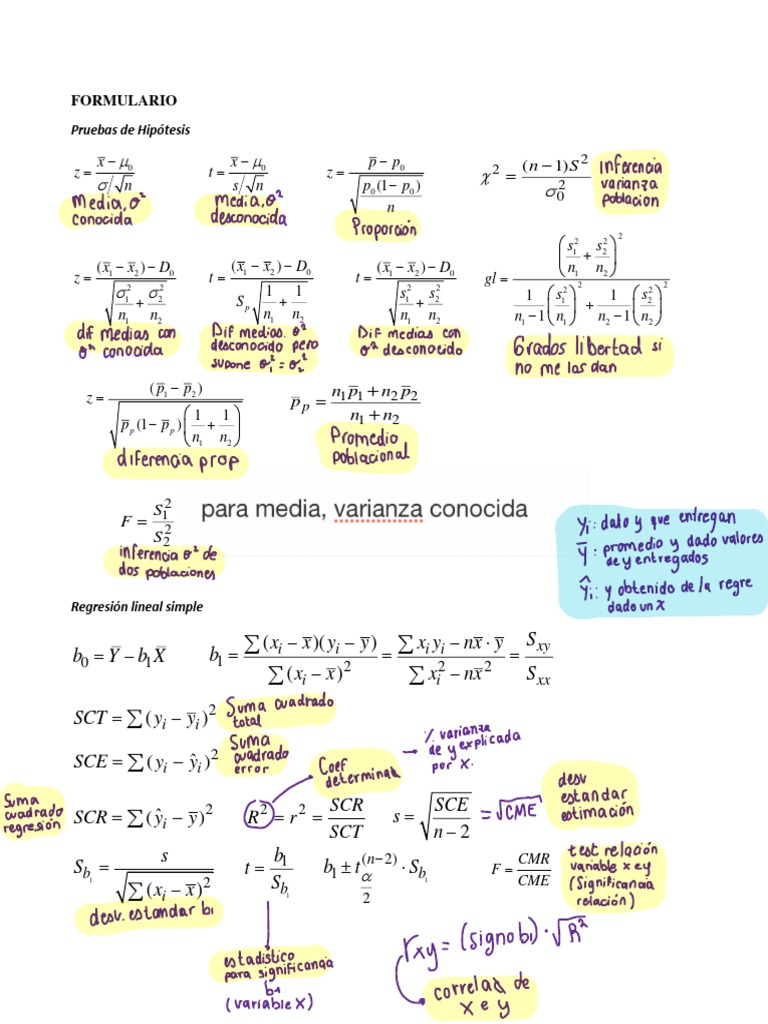 FORMULARIO
Pruebas de Hipótesis
z = (x̄ − μ₀) / (σ/√n)
Media, σ² conocida
t = (x̄ − μ₀) / (s/√n)
Media, σ² desconocida
z = (p̄ − p₀) / √(p₀(1 − p₀)/n)
Proporción
χ² = (n − 1)S² / σ₀²
Inferencia varianza poblacion
z = ((x̄₁ − x̄₂) − D₀) / √(σ₁²/n₁ + σ₂²/n₂)
dif medias con σ² conocida
t = ((x̄₁ − x̄₂) − D₀) / (S_p √(1/n₁ + 1/n₂))
Dif medias. σ² desconocido pero supone σ₁² = σ₂²
t = ((x̄₁ − x̄₂) − D₀) / √(s₁²/n₁ + s₂²/n₂)
Dif medias con σ² desconocido
gl = (s₁²/n₁ + s₂²/n₂)² / (1/(n₁ − 1) (s₁²/n₁)² + 1/(n₂ − 1) (s₂²/n₂)²)
Grados libertad si no me las dan
z = (p̄₁ − p̄₂) / √(p̄_p(1 − p̄_p)(1/n₁ + 1/n₂))
diferencia prop
p̄_p = (n₁p̄₁ + n₂p̄₂) / (n₁ + n₂)
Promedio poblacional
F = s₁² / s₂²
inferencia σ² de dos poblaciones
para media, varianza conocida
yi: dato y que entregan
ȳ: promedio y dado valores de y entregados
ŷi: y obtenido de la regre dado un x
Regresión lineal simple
b₀ = Ȳ − b₁X̄
b₁ = ∑(xᵢ − x̄)(yᵢ − ȳ) / ∑(xᵢ − x̄)² = (∑xᵢyᵢ − nx̄·ȳ) / (∑xᵢ² − nx̄²) = S_xy / S_xx
SCT = ∑(yᵢ − ȳᵢ)²
Suma cuadrado total
SCE = ∑(yᵢ − ŷᵢ)²
Suma cuadrado error
Coef determinal
→ % varianza de y explicada por x.
Suma cuadrado regresión
SCR = ∑(ŷᵢ − ȳ)²
R² = r² = SCR / SCT
s = √(SCE / (n − 2)) = √CME
desv estandar estimación
S_b₁ = s / √(∑(xᵢ − x̄)²)
desv. estandar b1
t = b₁ / S_b₁
b₁ ± t_(α/2)^(n−2) · S_b₁
F = CMR / CME
test relación variable x e y (Significancia relación)
estadistico para significancia b1 (variable X)
rxy = (signo b1) · √R²
correlac de x e y